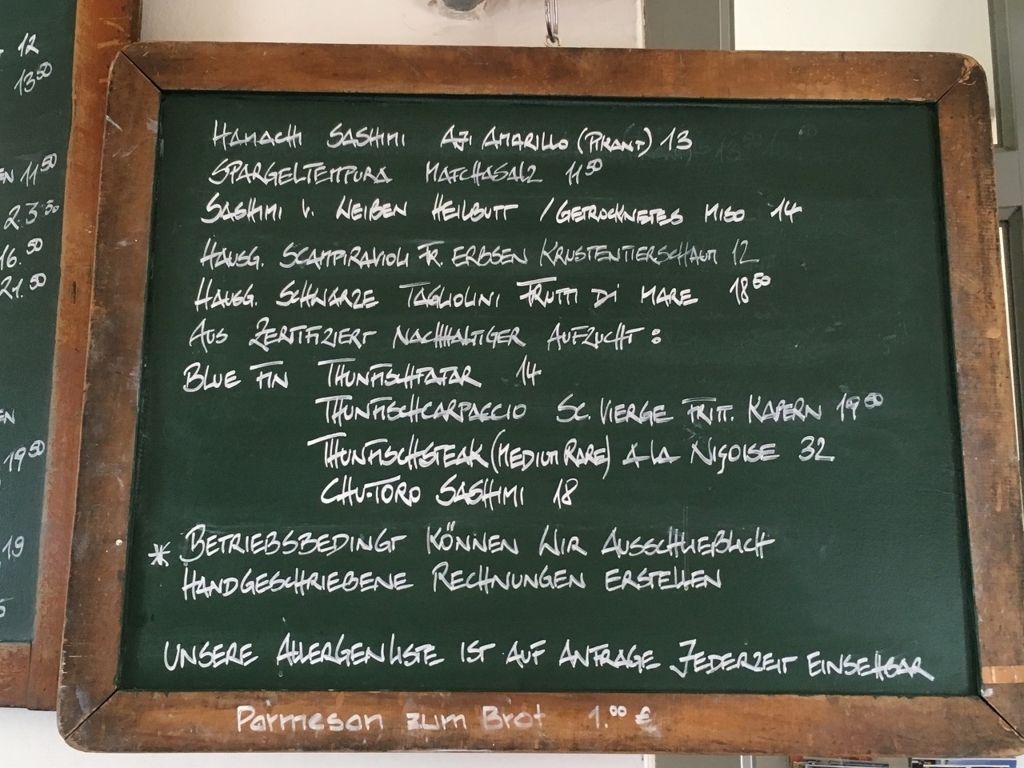 12
13 50
EN 11 50
23.50
16.50
21.50
EN
19 50
19
HAMACHI SASHIMI AJI AMARILLO (PIKANT) 13
SPARGELTEMPURA MATCHASALZ 11 50
SASHIMI V. WEIßEN HEILBUTT / GETROCKNETES MISO 14
HAUSG. SCAMPIRAVIOLI FR. ERBSEN KRUSTENTIERSCHAUM 12
HAUSG. SCHWARZE TAGLIOLINI FRUTTI DI MARE 18 50
AUS ZERTIFIZIERT NACHHALTIGER AUFZUCHT :
BLUE FIN THUNFISCHTATAR 14
THUNFISCHCARPACCIO SC. VIERGE FRIT. KAPERN 19 50
THUNFISCHSTEAK (MEDIUM RARE) A LA NIÇOISE 32
CHU-TORO SASHIMI 18
* BETRIEBSBEDINGT KÖNNEN WIR AUSSCHLIEßLICH
HANDGESCHRIEBENE RECHNUNGEN ERSTELLEN
UNSERE ALLERGENLISTE IST AUF ANFRAGE JEDERZEIT EINSEHBAR
Parmesan zum Brot 1.00 €